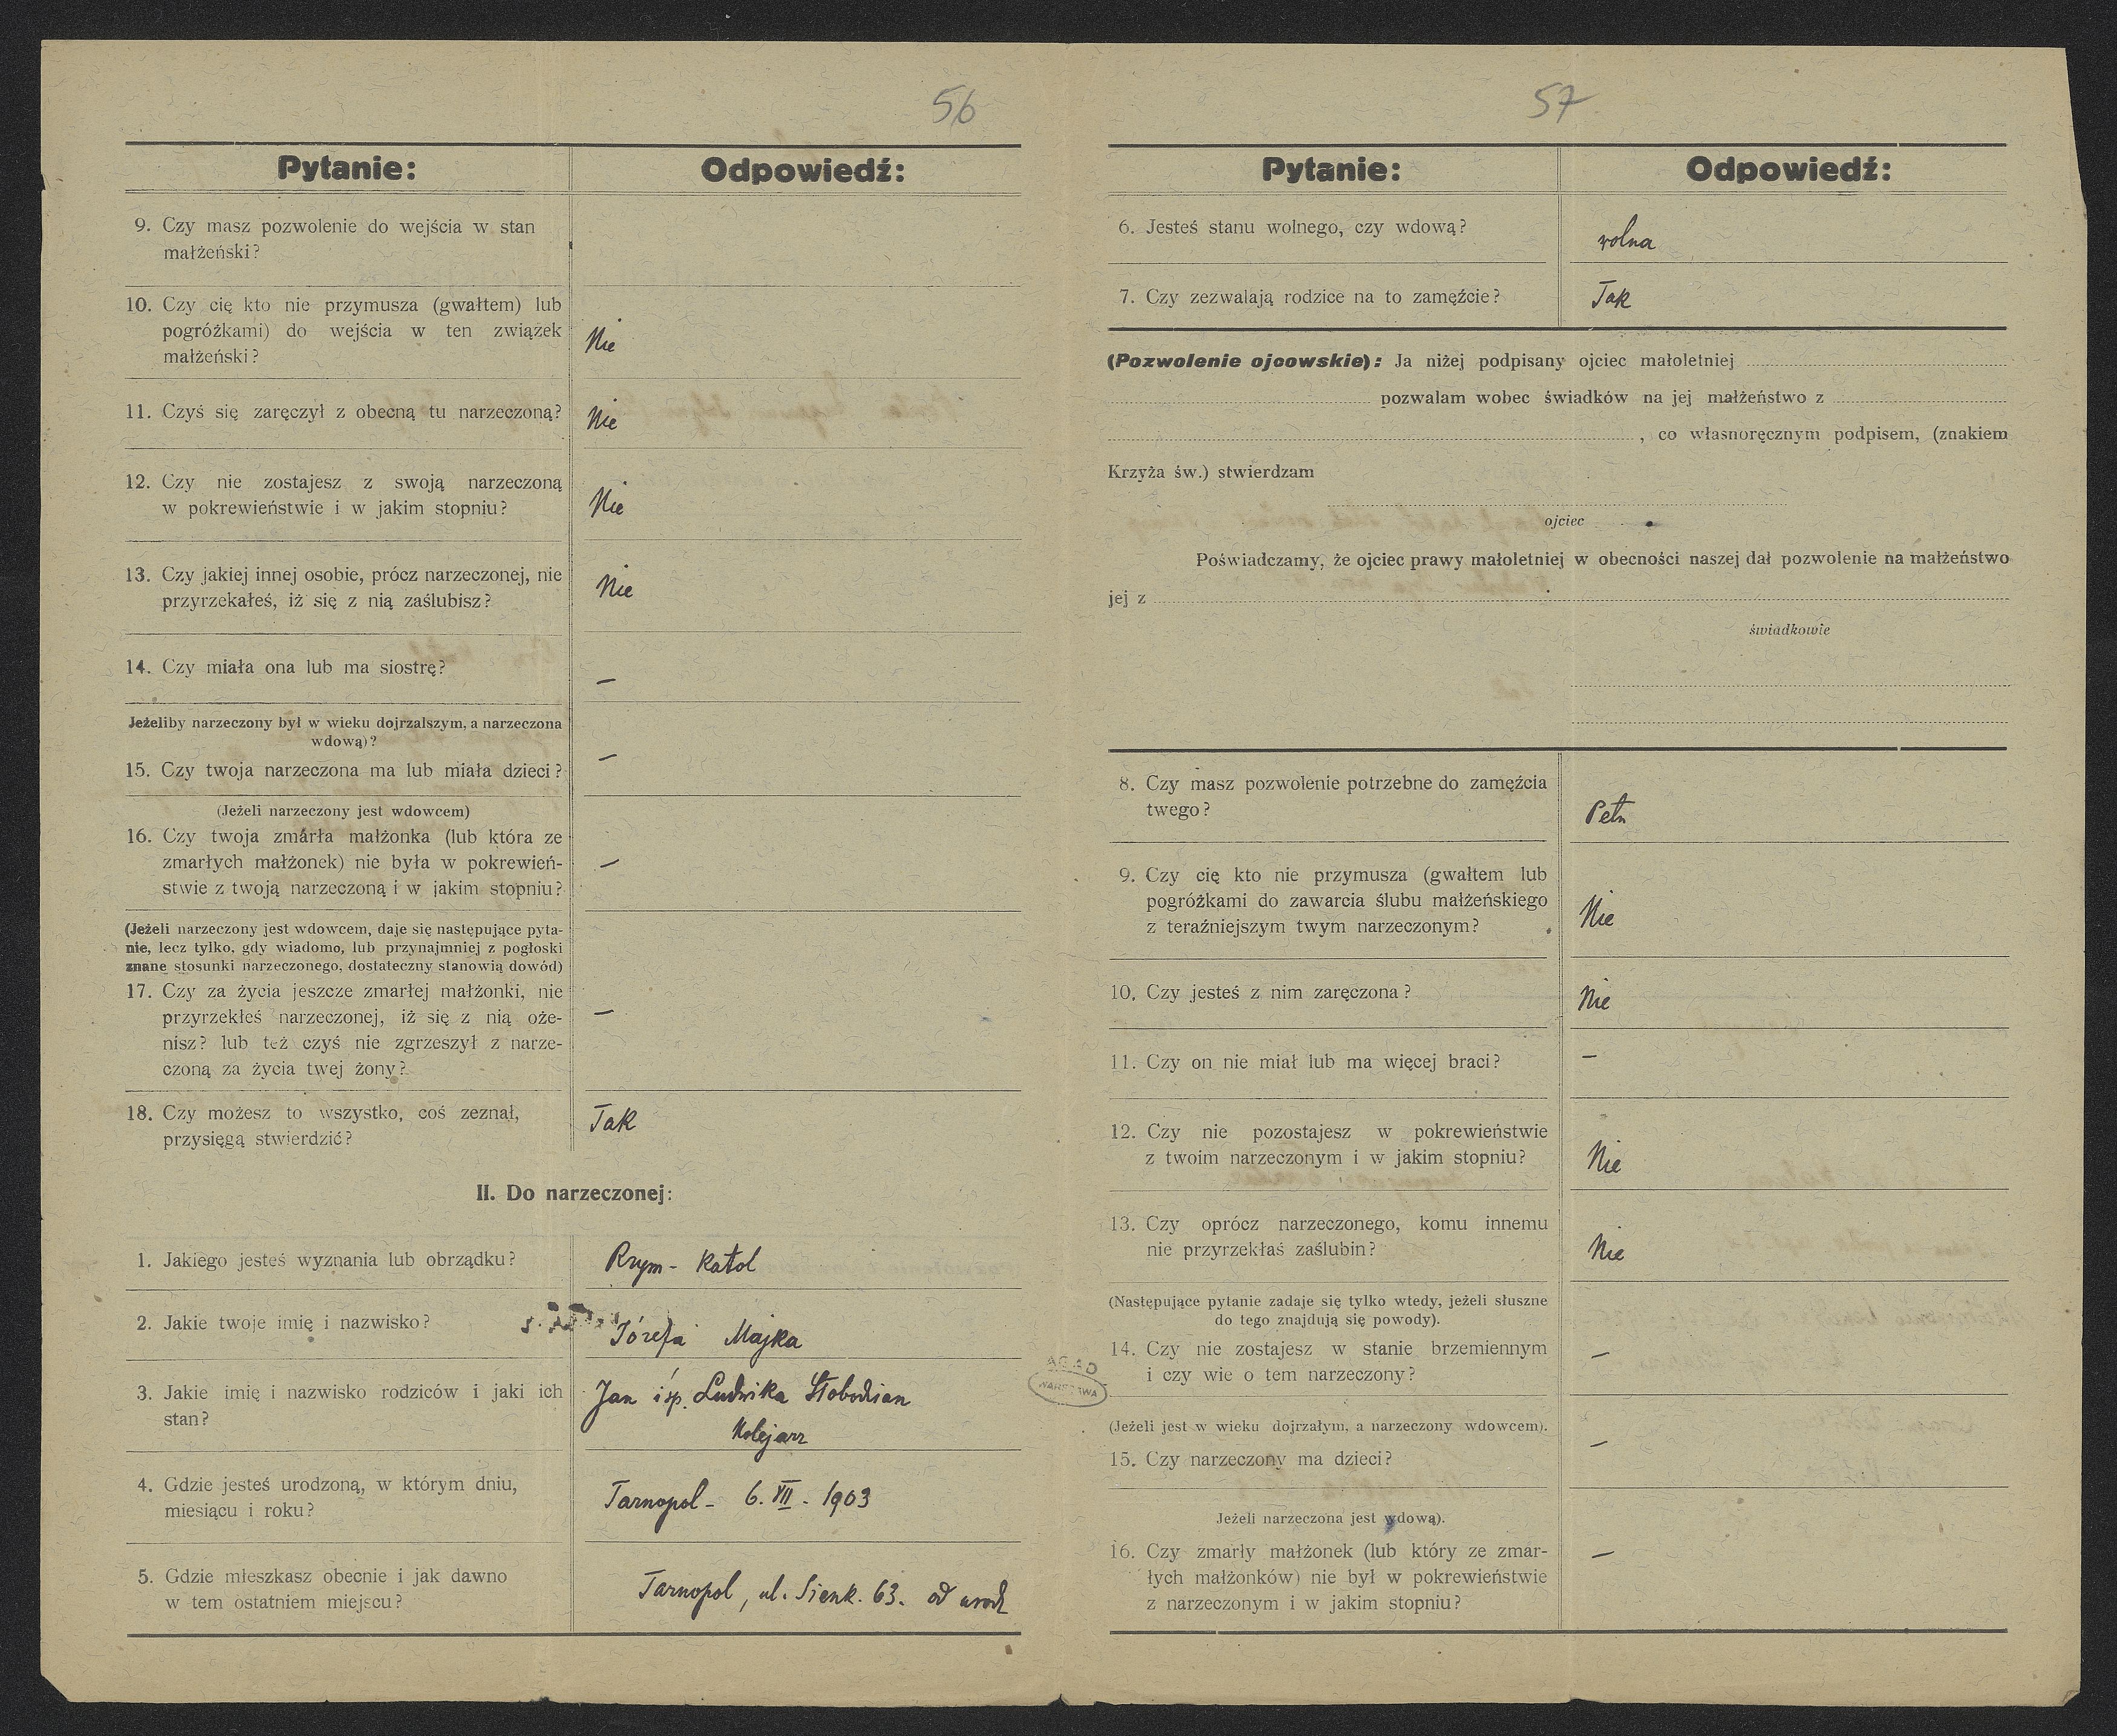 56
Pytanie: Odpowiedź:
9. Czy masz pozwolenie do wejścia w stan
małżeński?
10. Czy cię kto nie przymusza (gwałtem) lub
pogróżkami) do wejścia w ten związek
małżeński? Nie
11. Czyś się zaręczył z obecną tu narzeczoną? Nie
12. Czy nie zostajesz z swoją narzeczoną
w pokrewieństwie i w jakim stopniu? Nie
13. Czy jakiej innej osobie, prócz narzeczonej, nie
przyrzekałeś, iż się z nią zaślubisz? Nie
14. Czy miała ona lub ma siostrę? —
Jeżeliby narzeczony był w wieku dojrzalszym, a narzeczona
wdową)?
15. Czy twoja narzeczona ma lub miała dzieci? —
(Jeżeli narzeczony jest wdowcem)
16. Czy twoja zmarła małżonka (lub która ze
zmarłych małżonek) nie była w pokrewień-
stwie z twoją narzeczoną i w jakim stopniu? —
(Jeżeli narzeczony jest wdowcem, daje się następujące pyta-
nie, lecz tylko, gdy wiadomo, lub przynajmniej z pogłoski
znane stosunki narzeczonego, dostateczny stanowią dowód)
17. Czy za życia jeszcze zmarłej małżonki, nie
przyrzekłeś narzeczonej, iż się z nią oże- —
nisz? lub też czyś nie zgrzeszył z narze-
czoną za życia twej żony?
18. Czy możesz to wszystko, coś zeznał, Tak
przysięgą stwierdzić?
II. Do narzeczonej:
1. Jakiego jesteś wyznania lub obrządku? Rzym- katol
2. Jakie twoje imię i nazwisko? Józefa Majka
3. Jakie imię i nazwisko rodziców i jaki ich Jan i śp. Ludwika Słobodian
stan? Kolejarz
4. Gdzie jesteś urodzoną, w którym dniu,
miesiącu i roku? Tarnopol - 6. VII - 1903
5. Gdzie mieszkasz obecnie i jak dawno
w tem ostatniem miejscu? Tarnopol, ul. Sienk. 63. od urodz
AGAD
WARSZAWA
57
Pytanie: Odpowiedź:
6. Jesteś stanu wolnego, czy wdową? wolna
7. Czy zezwalają rodzice na to zamęźcie? Tak
(Pozwolenie ojcowskie): Ja niżej podpisany ojciec małoletniej
pozwalam wobec świadków na jej małżeństwo z
, co własnoręcznym podpisem, (znakiem
Krzyża św.) stwierdzam
ojciec
Poświadczamy, że ojciec prawy małoletniej w obecności naszej dał pozwolenie na małżeństwo
jej z
świadkowie
8. Czy masz pozwolenie potrzebne do zamęźcia
twego? Pełn
9. Czy cię kto nie przymusza (gwałtem lub
pogróżkami do zawarcia ślubu małżeńskiego
z teraźniejszym twym narzeczonym? Nie
10. Czy jesteś z nim zaręczona? Nie
11. Czy on nie miał lub ma więcej braci? —
12. Czy nie pozostajesz w pokrewieństwie
z twoim narzeczonym i w jakim stopniu? Nie
13. Czy oprócz narzeczonego, komu innemu
nie przyrzekłaś zaślubin? Nie
(Następujące pytanie zadaje się tylko wtedy, jeżeli słuszne
do tego znajdują się powody).
14. Czy nie zostajesz w stanie brzemiennym —
i czy wie o tem narzeczony?
(Jeżeli jest w wieku dojrzałym, a narzeczony wdowcem). —
15. Czy narzeczony ma dzieci?
Jeżeli narzeczona jest wdową).
16. Czy zmarły małżonek (lub który ze zmar- —
łych małżonków) nie był w pokrewieństwie
z narzeczonym i w jakim stopniu?